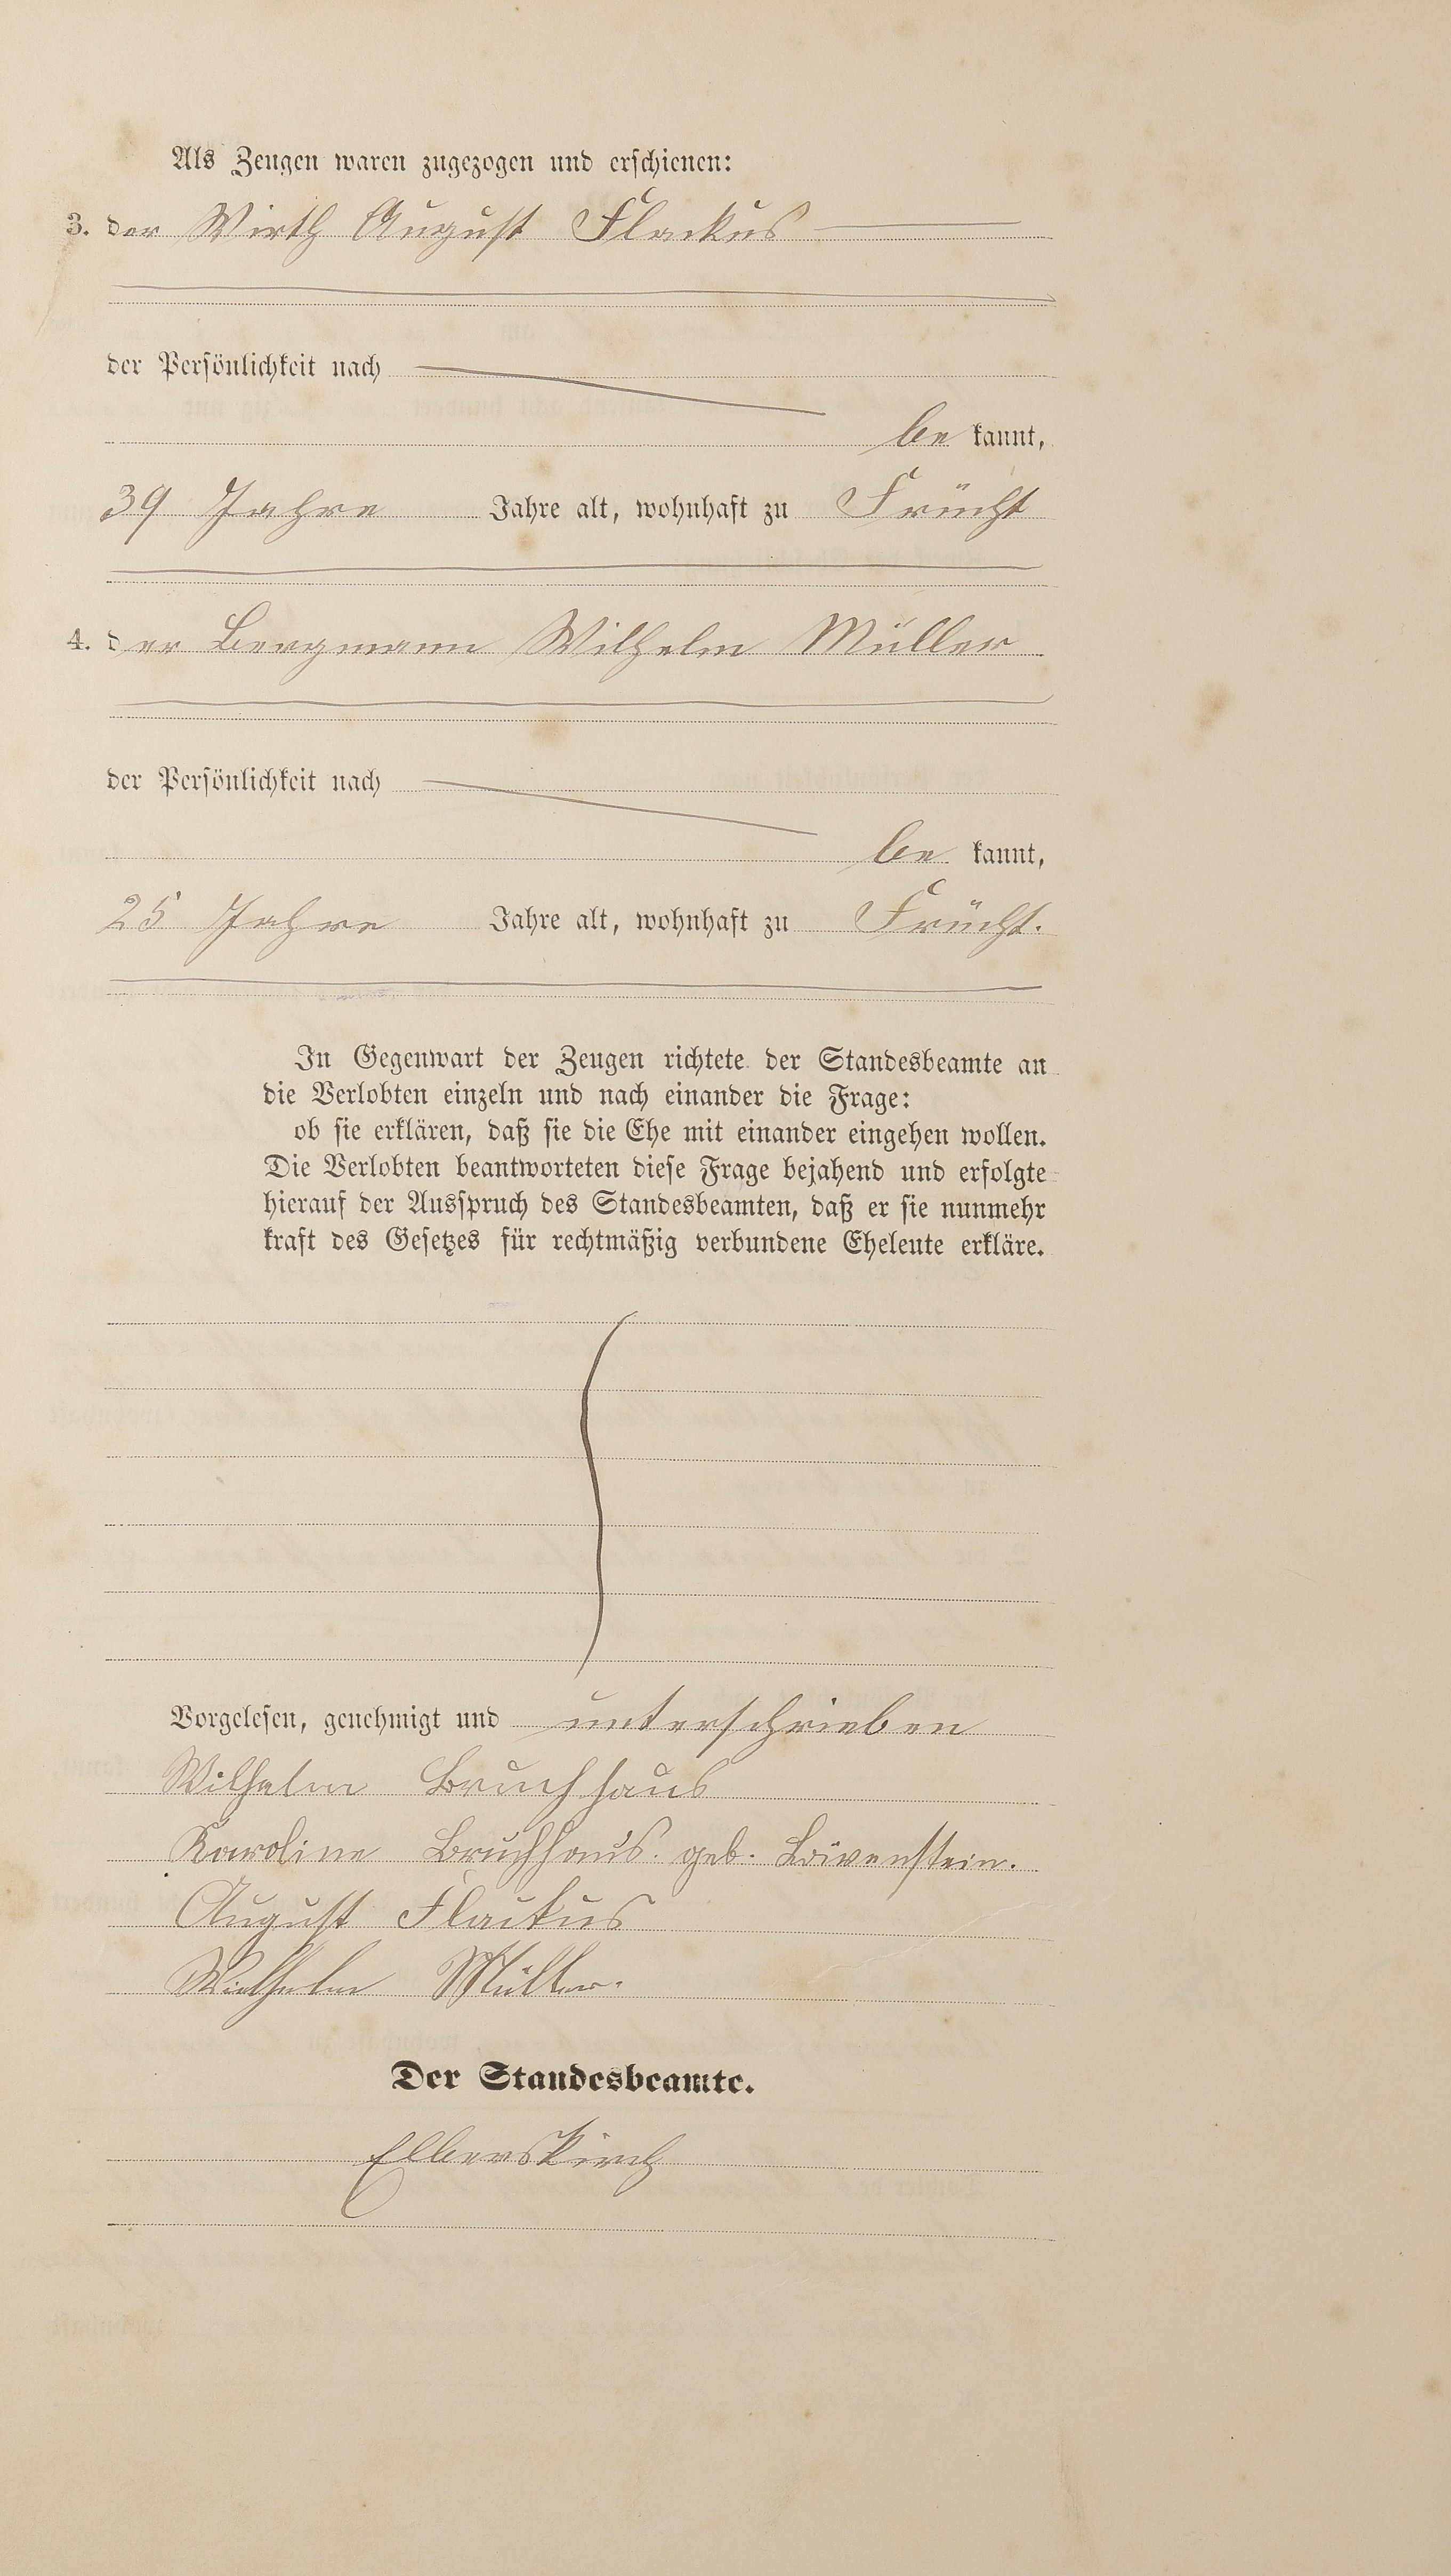 Als Zeugen waren zugezogen und erschienen:
3. der Wirth August Flackus
der Persönlichkeit nach
be kannt,
39 Jahre Jahre alt, wohnhaft zu Frücht
4. der Bergmann Wilhelm Müller
der Persönlichkeit nach
be kannt,
25 Jahre Jahre alt, wohnhaft zu Frücht.
In Gegenwart der Zeugen richtete der Standesbeamte an
die Verlobten einzeln und nach einander die Frage:
ob sie erklären, daß sie die Ehe mit einander eingehen wollen.
Die Verlobten beantworteten diese Frage bejahend und erfolgte
hierauf der Ausspruch des Standesbeamten, daß er sie nunmehr
kraft des Gesetzes für rechtmäßig verbundene Eheleute erkläre.
Vorgelesen, genehmigt und unterschrieben
Wilhelm Bruchhaus
Karoline Bruchhaus. geb. Lövenstein.
August Flackus
Wilhelm Müller.
Der Standesbeamte.
Elberskirch